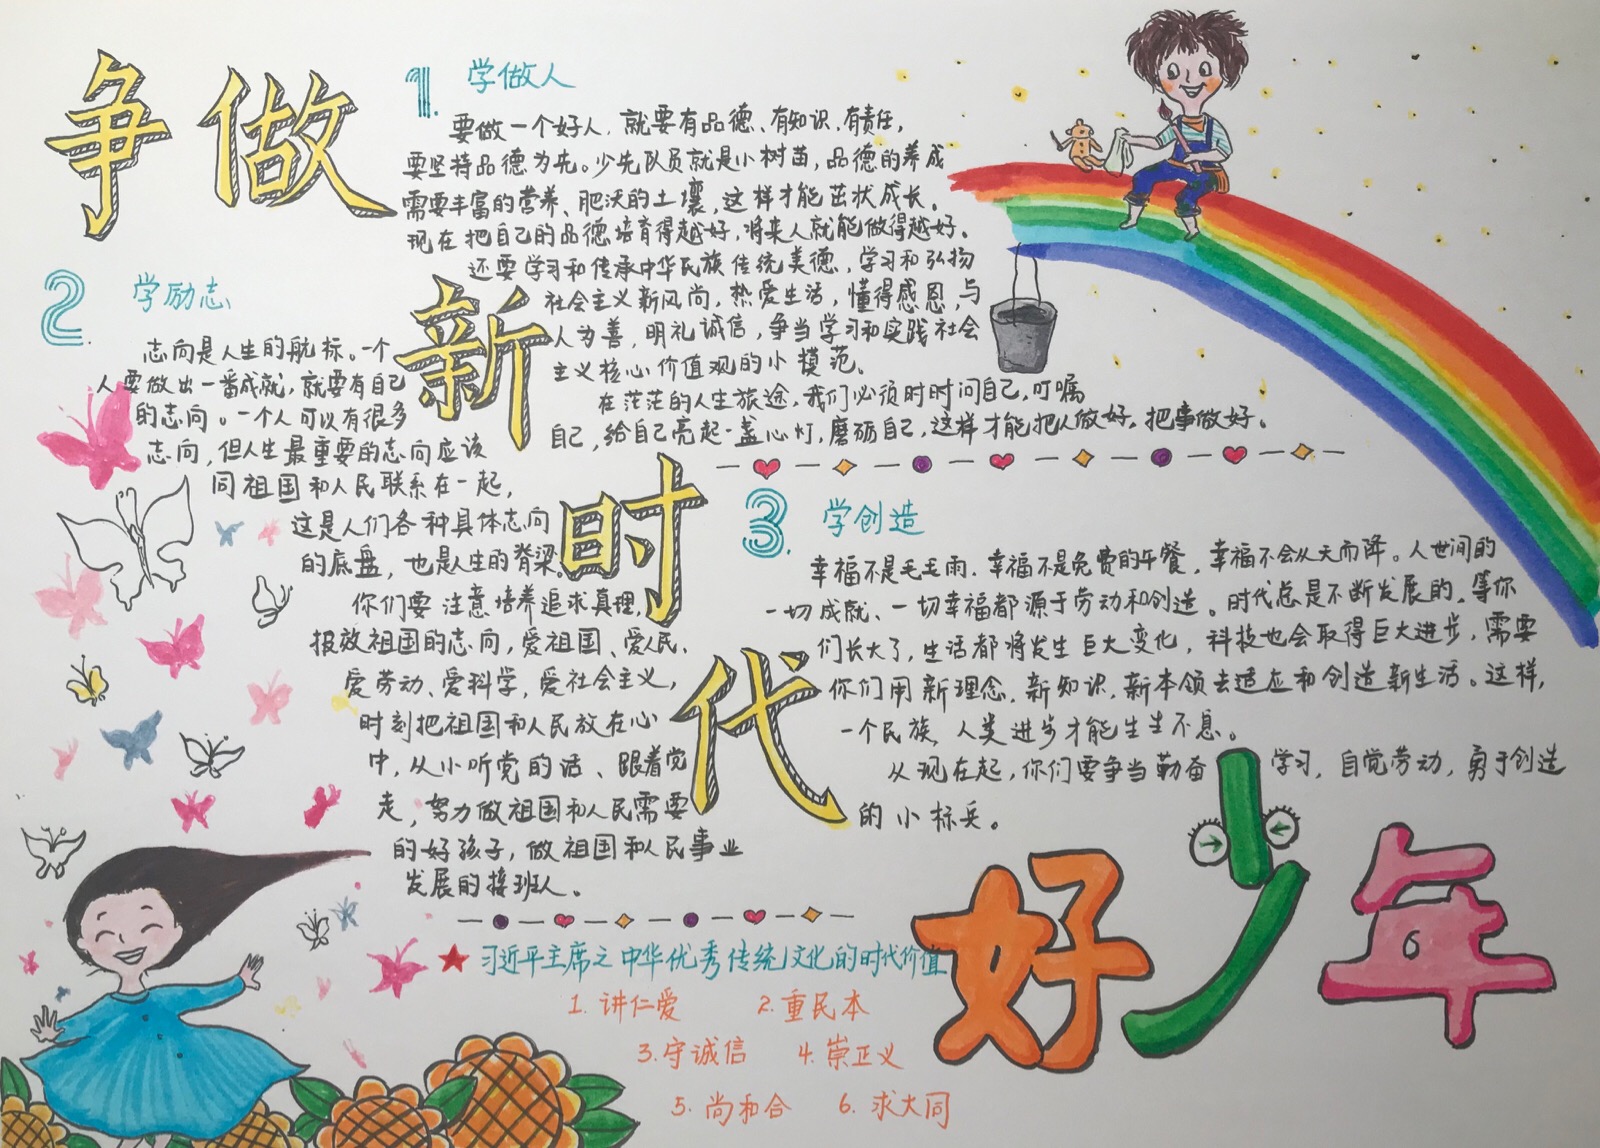 争做
新
时
代
好少年
1. 学做人
要做一个好人，就要有品德、有知识、有责任，
要坚持品德为先。少先队员就是小树苗，品德的养成
需要丰富的营养、肥沃的土壤，这样才能茁状成长。
现在把自己的品德培育得越好，将来人就能做得越好。
还要学习和传承中华民族传统美德，学习和弘扬
社会主义新风尚，热爱生活，懂得感恩，与
人为善，明礼诚信，争当学习和实践社会
主义核心价值观的小模范。
在茫茫的人生旅途，我们必须时时问自己，叮嘱
自己，给自己亮起一盏心灯，磨砺自己，这样才能把人做好，把事做好。
2. 学励志
志向是人生的航标。一个
人要做出一番成就，就要有自己
的志向。一个人可以有很多
志向，但人生最重要的志向应该
同祖国和人民联系在一起，
这是人们各种具体志向
的底盘，也是人生的脊梁。
你们要注意培养追求真理，
报放祖国的志向，爱祖国、爱人民、
爱劳动、爱科学，爱社会主义，
时刻把祖国和人民放在心
中，从小听党的话、跟着党
走，努力做祖国和人民需要
的好孩子，做祖国和人民事业
发展的接班人。
3. 学创造
幸福不是毛毛雨，幸福不是免费的午餐，幸福不会从天而降。人世间的
一切成就、一切幸福都源于劳动和创造。时代总是不断发展的，等你
们长大了，生活都将发生巨大变化，科技也会取得巨大进步，需要
你们用新理念，新知识，新本领去适应和创造新生活。这样，
一个民族、人类进步才能生生不息。
从现在起，你们要争当勤奋学习，自觉劳动，勇于创造
的小标兵。
习近平主席之中华优秀传统文化的时代价值
1. 讲仁爱 2. 重民本
3. 守诚信 4. 崇正义
5. 尚和合 6. 求大同